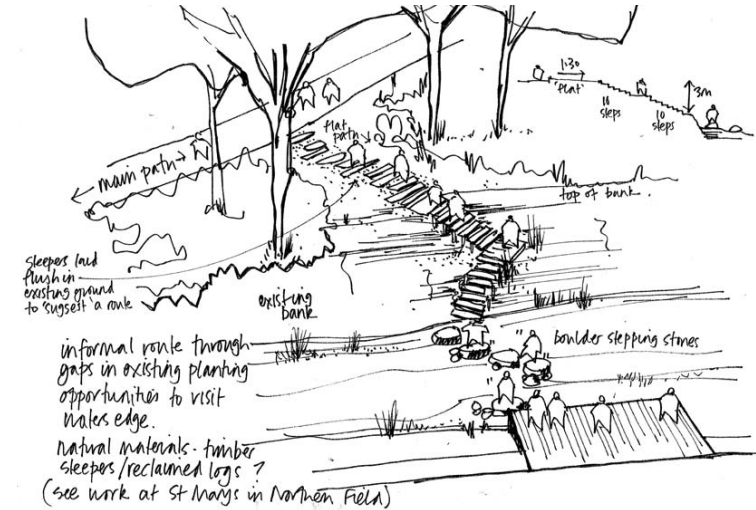 1:30
'flat'
3m
10
steps
10
steps
flat
path
← main path →
top of bank.
sleepers laid
flush in
existing ground
to 'sugsest' a route
existing
bank
boulder stepping stones
informal route through
gaps in existing planting
opportunities to visit
waters edge.
natural materials - timber
sleepers/reclaimed logs ?
(see work at St Marys in Northern Field)